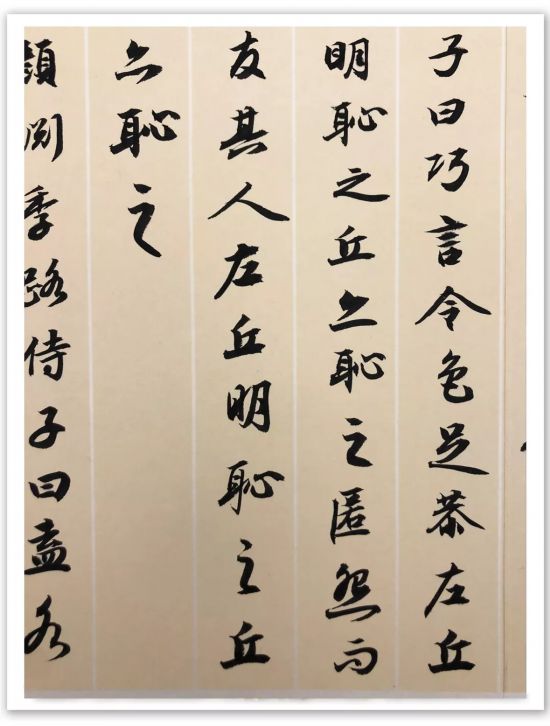 子曰巧言令色足恭左丘
明恥之丘亦恥之匿怨而
友其人左丘明恥之丘
亦恥之
顏渊季路侍子曰盍各